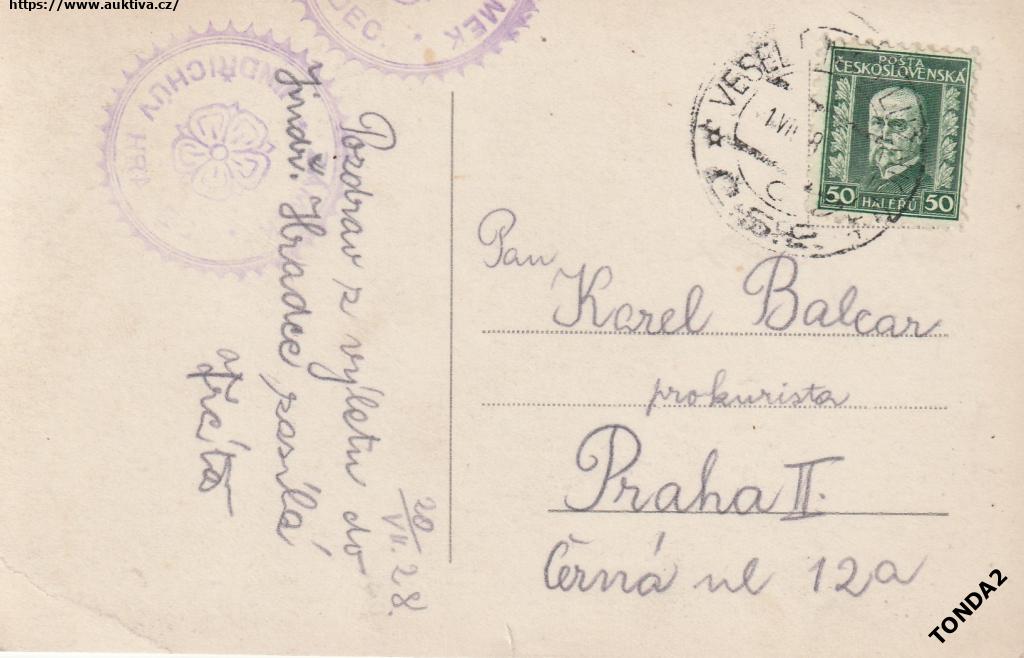 https://www.auktiva.cz/
JINDŘICHŮV HRA
DEC.
MEK
Pozdrav z výletu do
Jindř. Hradce zasílá
20/VII. 28.
VESEL
1.VII
8
POŠTA
ČESKOSLOVENSKÁ
50 HALÉŘŮ 50
Pan
Karel Balcar
prokurista
Praha II.
Černá ul 12a
TONDA2